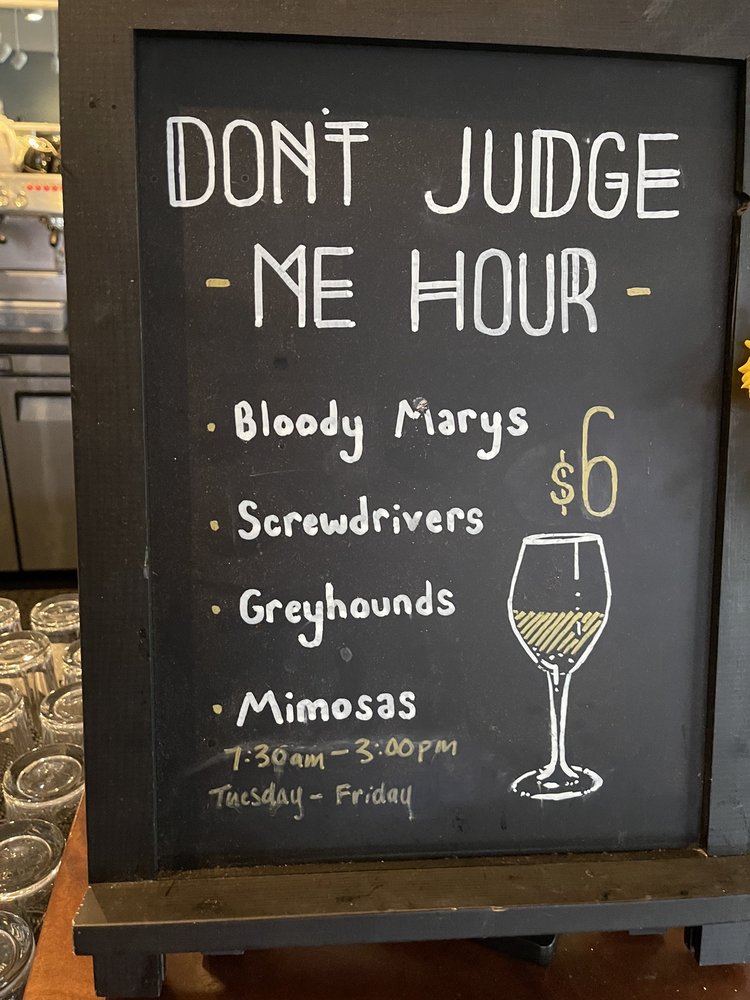 DON'T JUDGE
- ME HOUR -
• Bloody Marys
$6
• Screwdrivers
• Greyhounds
• Mimosas
7:30am - 3:00pm
Tuesday - Friday